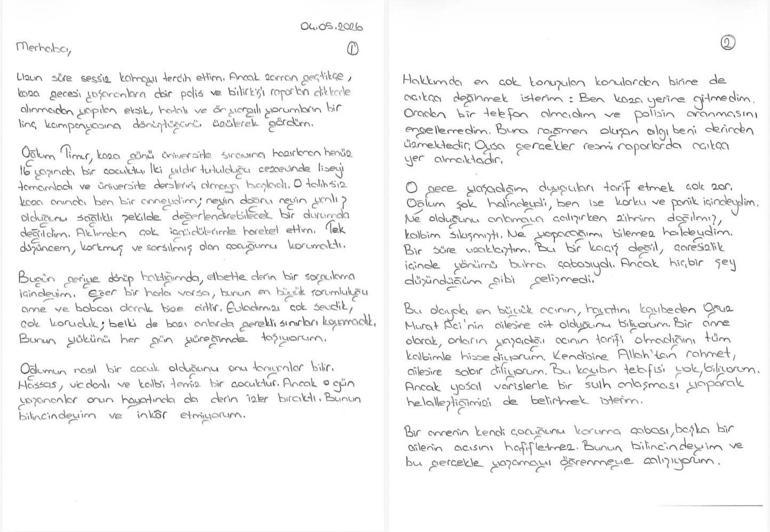 04.05.2026
Merhaba,
1
Uzun süre sessiz kalmayı tercih ettim. Ancak zaman geçtikçe,
kaza gecesi yaşananların dair polis ve bilirkişi raporları dikkate
alınmadan yapılan eksik, hatalı ve önyargılı yorumların bir
linç kampanyasına dönüştüğünü üzülerek gördüm.
Oğlum Timur, kaza günü üniversite sınavına hazırlanan henüz
16 yaşında bir çocuktu. İki yıldır tutulduğu cezaevinde liseyi
tamamladı ve üniversite dersleri almaya başladı. O talihsiz
kaza anında ben bir anneydim; neyin doğru neyin yanlış
olduğunu sağlıklı şekilde değerlendirebilecek bir durumda
değildim. Aklımdan çok içgüdülerimle hareket ettim. Tek
düşüncem, korkmuş ve sarsılmış olan çocuğumu korumaktı.
Bugün geriye dönüp baktığımda, elbette derin bir sorgulama
içindeyim. Eğer bir hata varsa, bunun en büyük sorumluluğu
anne ve babası olarak bize aittir. Evladımızı çok sevdik,
çok koruduk; belki de bazı anlarda gerekli sınırları koyamadık.
Bunun yükünü her gün yüreğimde taşıyorum.
Oğlumun nasıl bir çocuk olduğunu onu tanıyanlar bilir.
Hassas, vicdanlı ve kalbi temiz bir çocuktur. Ancak o gün
yaşananlar onun hayatında da derin izler bıraktı. Bunun
bilincindeyim ve inkâr etmiyorum.
2
Hakkımda en çok konuşulan konulardan birine de
açıkça değinmek isterim: Ben kaza yerine gitmedim.
Oradan bir telefon almadım ve polisin aranmasını
engellemedim. Buna rağmen oluşan algı beni derinden
üzmektedir. Oysa gerçekler resmi raporlarda açıkça
yer almaktadır.
O gece yaşadığım duyguları tarif etmek çok zor.
Oğlum şok halindeydi, ben ise korku ve panik içindeydim.
Ne olduğunu anlamaya çalışırken zihnim dağılmış,
kalbim sıkışmıştı. Ne yapacağımı bilemez haldeydim.
Bir süre uzaklaştım. Bu bir kaçış değil, çaresizlik
içinde yönümü bulma çabasıydı. Ancak hiçbir şey
düşündüğüm gibi gelişmedi.
Bu olayda en büyük acının, hayatını kaybeden Oğuz
Murat Aci'nin ailesine ait olduğunu biliyorum. Bir anne
olarak, onların yaşadığı acının tarifi olmadığını tüm
kalbimle hissediyorum. Kendisine Allah'tan rahmet,
ailesine sabır diliyorum. Bu kaybın telafisi yok, biliyorum.
Ancak yasal varislerle bir sulh anlaşması yaparak
helalleştiğimizi de belirtmek isterim.
Bir annenin kendi çocuğunu koruma çabası, başka bir
ailenin acısını hafifletmez. Bunun bilincindeyim ve
bu gerçekle yaşamayı öğrenmeye çalışıyorum.